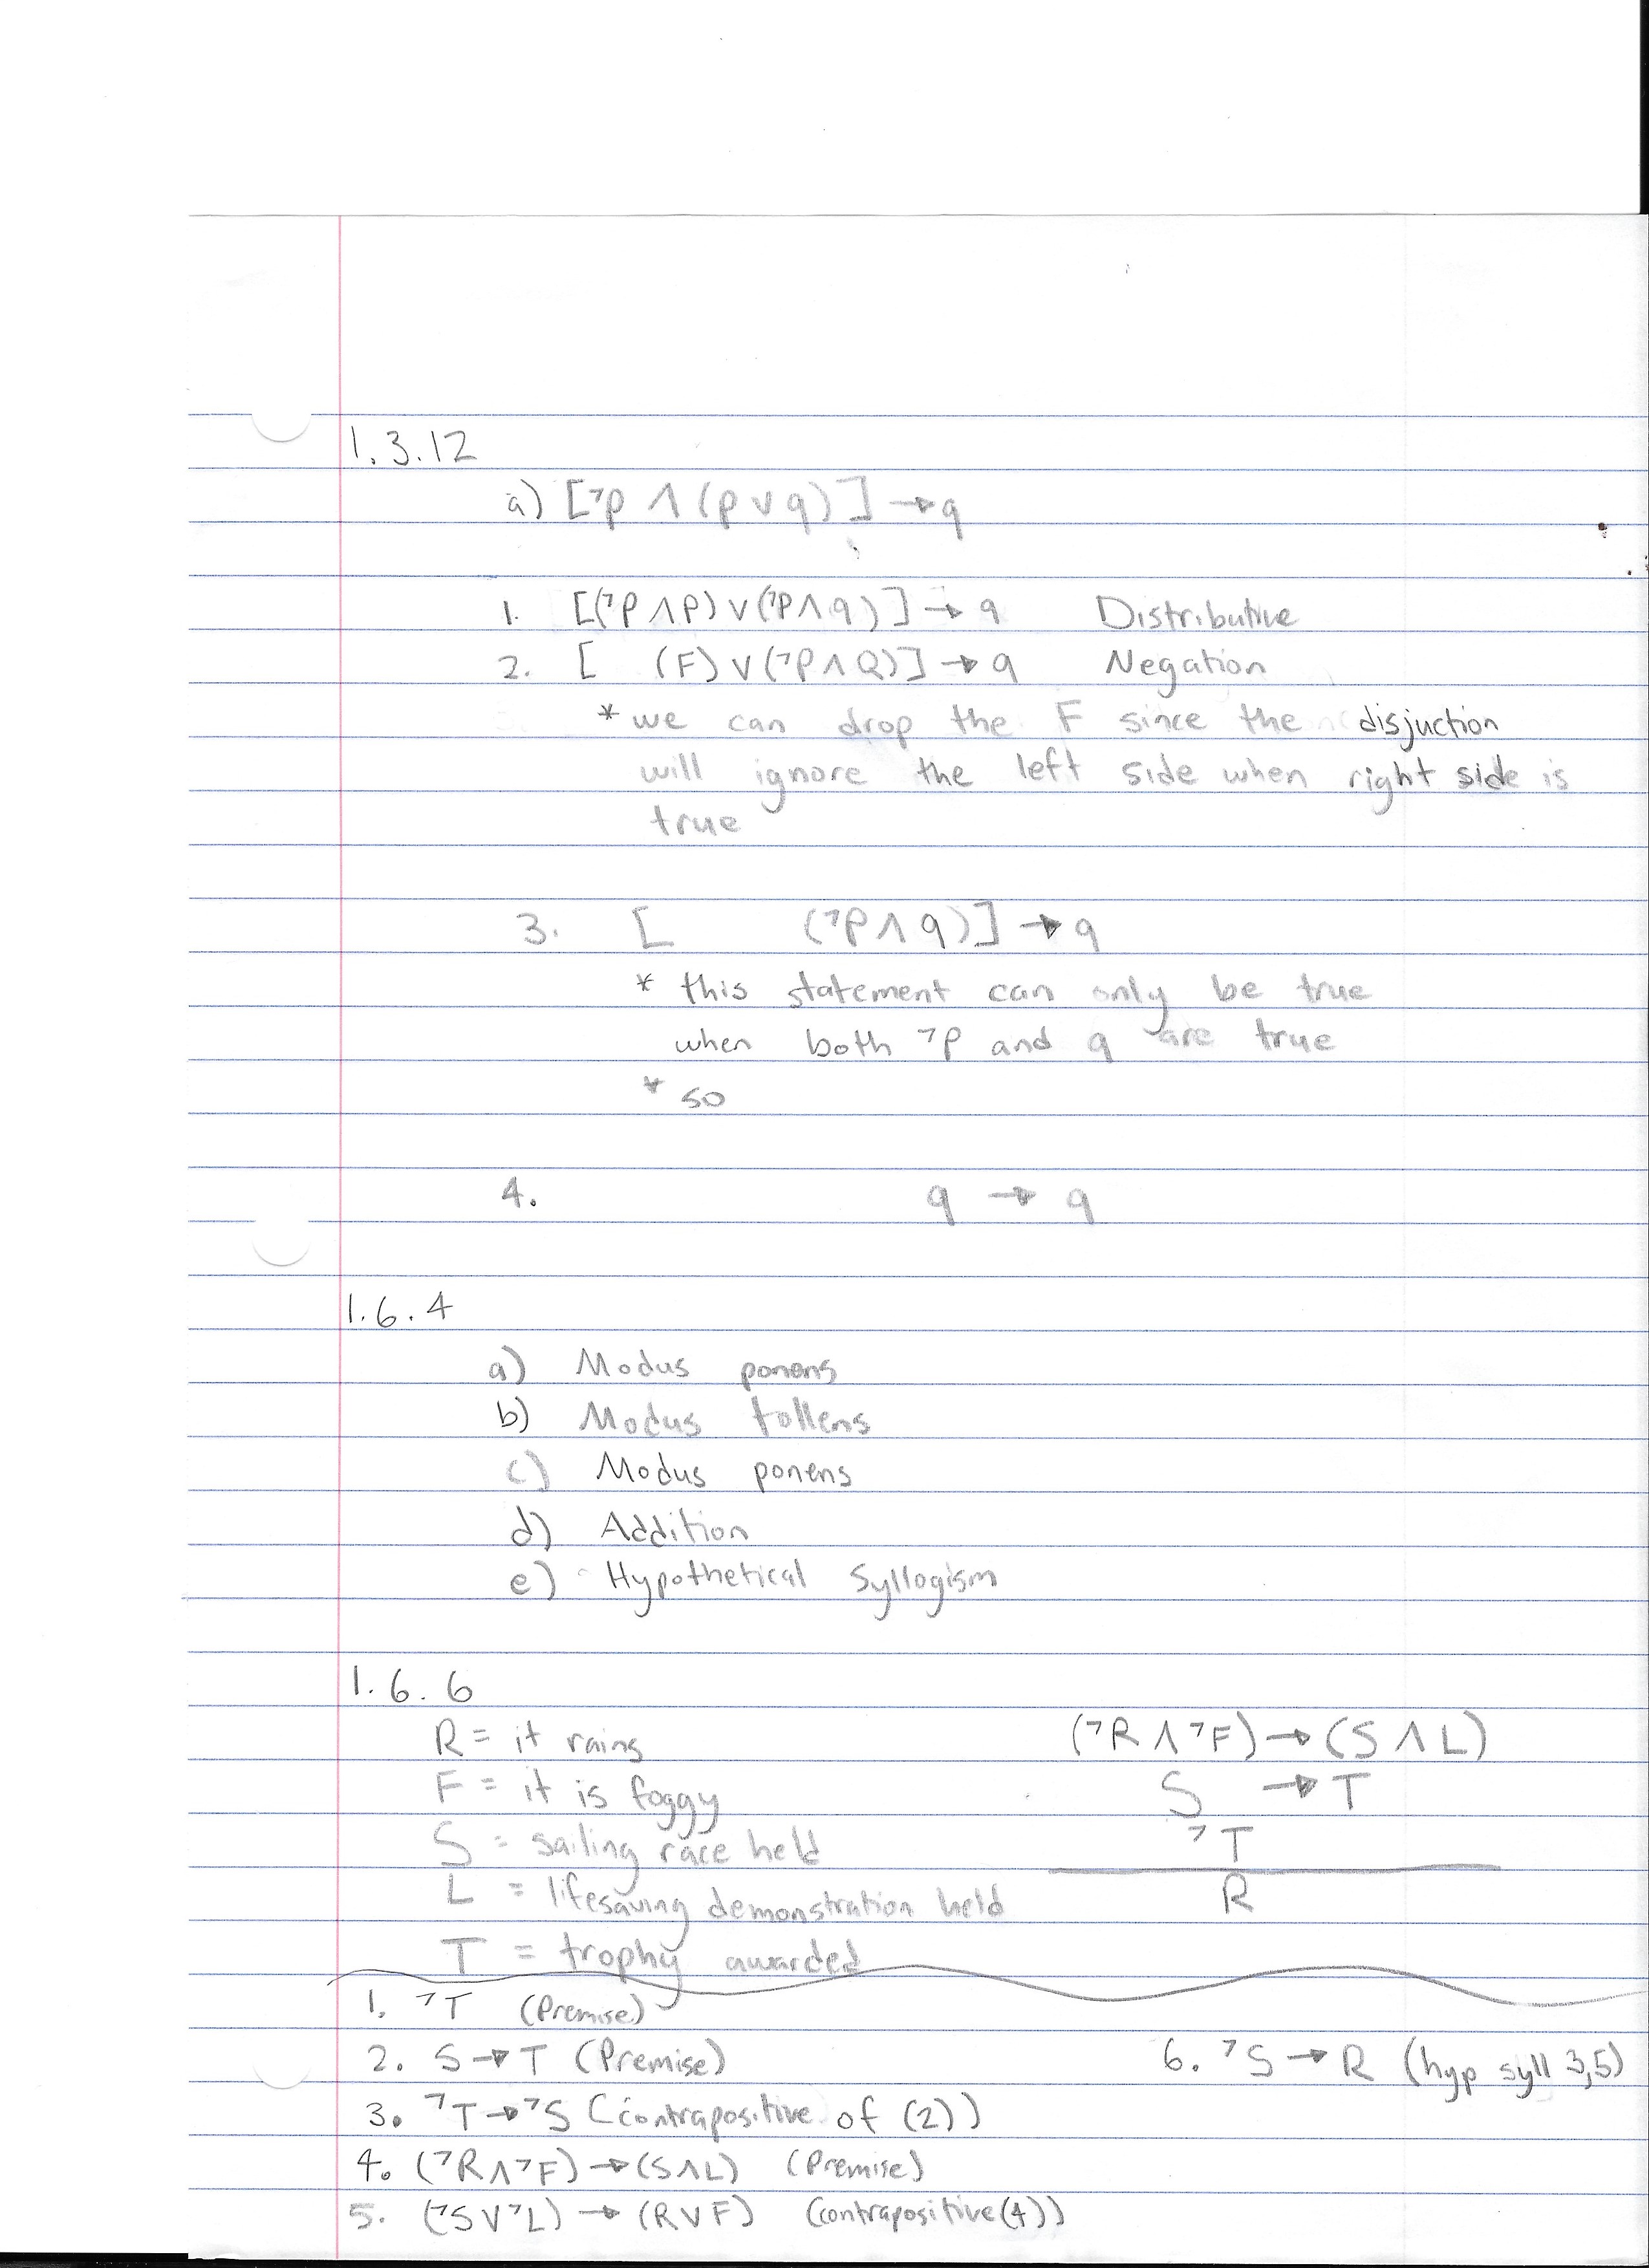 1.3.12
a) [¬p ∧ (p ∨ q)] → q
1. [(¬P ∧ P) ∨ (¬P ∧ q)] → q Distributive
2. [ (F) ∨ (¬P ∧ Q)] → q Negation
* we can drop the F since the disjuction
will ignore the left side when right side is
true
3. [ (¬P ∧ q)] → q
* this statement can only be true
when both ¬P and q are true
* so
4. q → q
1.6.4
a) Modus ponens
b) Modus tollens
c) Modus ponens
d) Addition
e) Hypothetical Syllogism
1.6.6
R = it rains
F = it is foggy
S = sailing race held
L = lifesaving demonstration held
T = trophy awarded
(¬R ∧ ¬F) → (S ∧ L)
S → T
¬T
R
1. ¬T (Premise)
2. S → T (Premise)
3. ¬T → ¬S (contrapositive of (2))
4. (¬R ∧ ¬F) → (S ∧ L) (Premise)
5. (¬S ∨ ¬L) → (R ∨ F) (contrapositive (4))
6. ¬S → R (hyp syll 3,5)